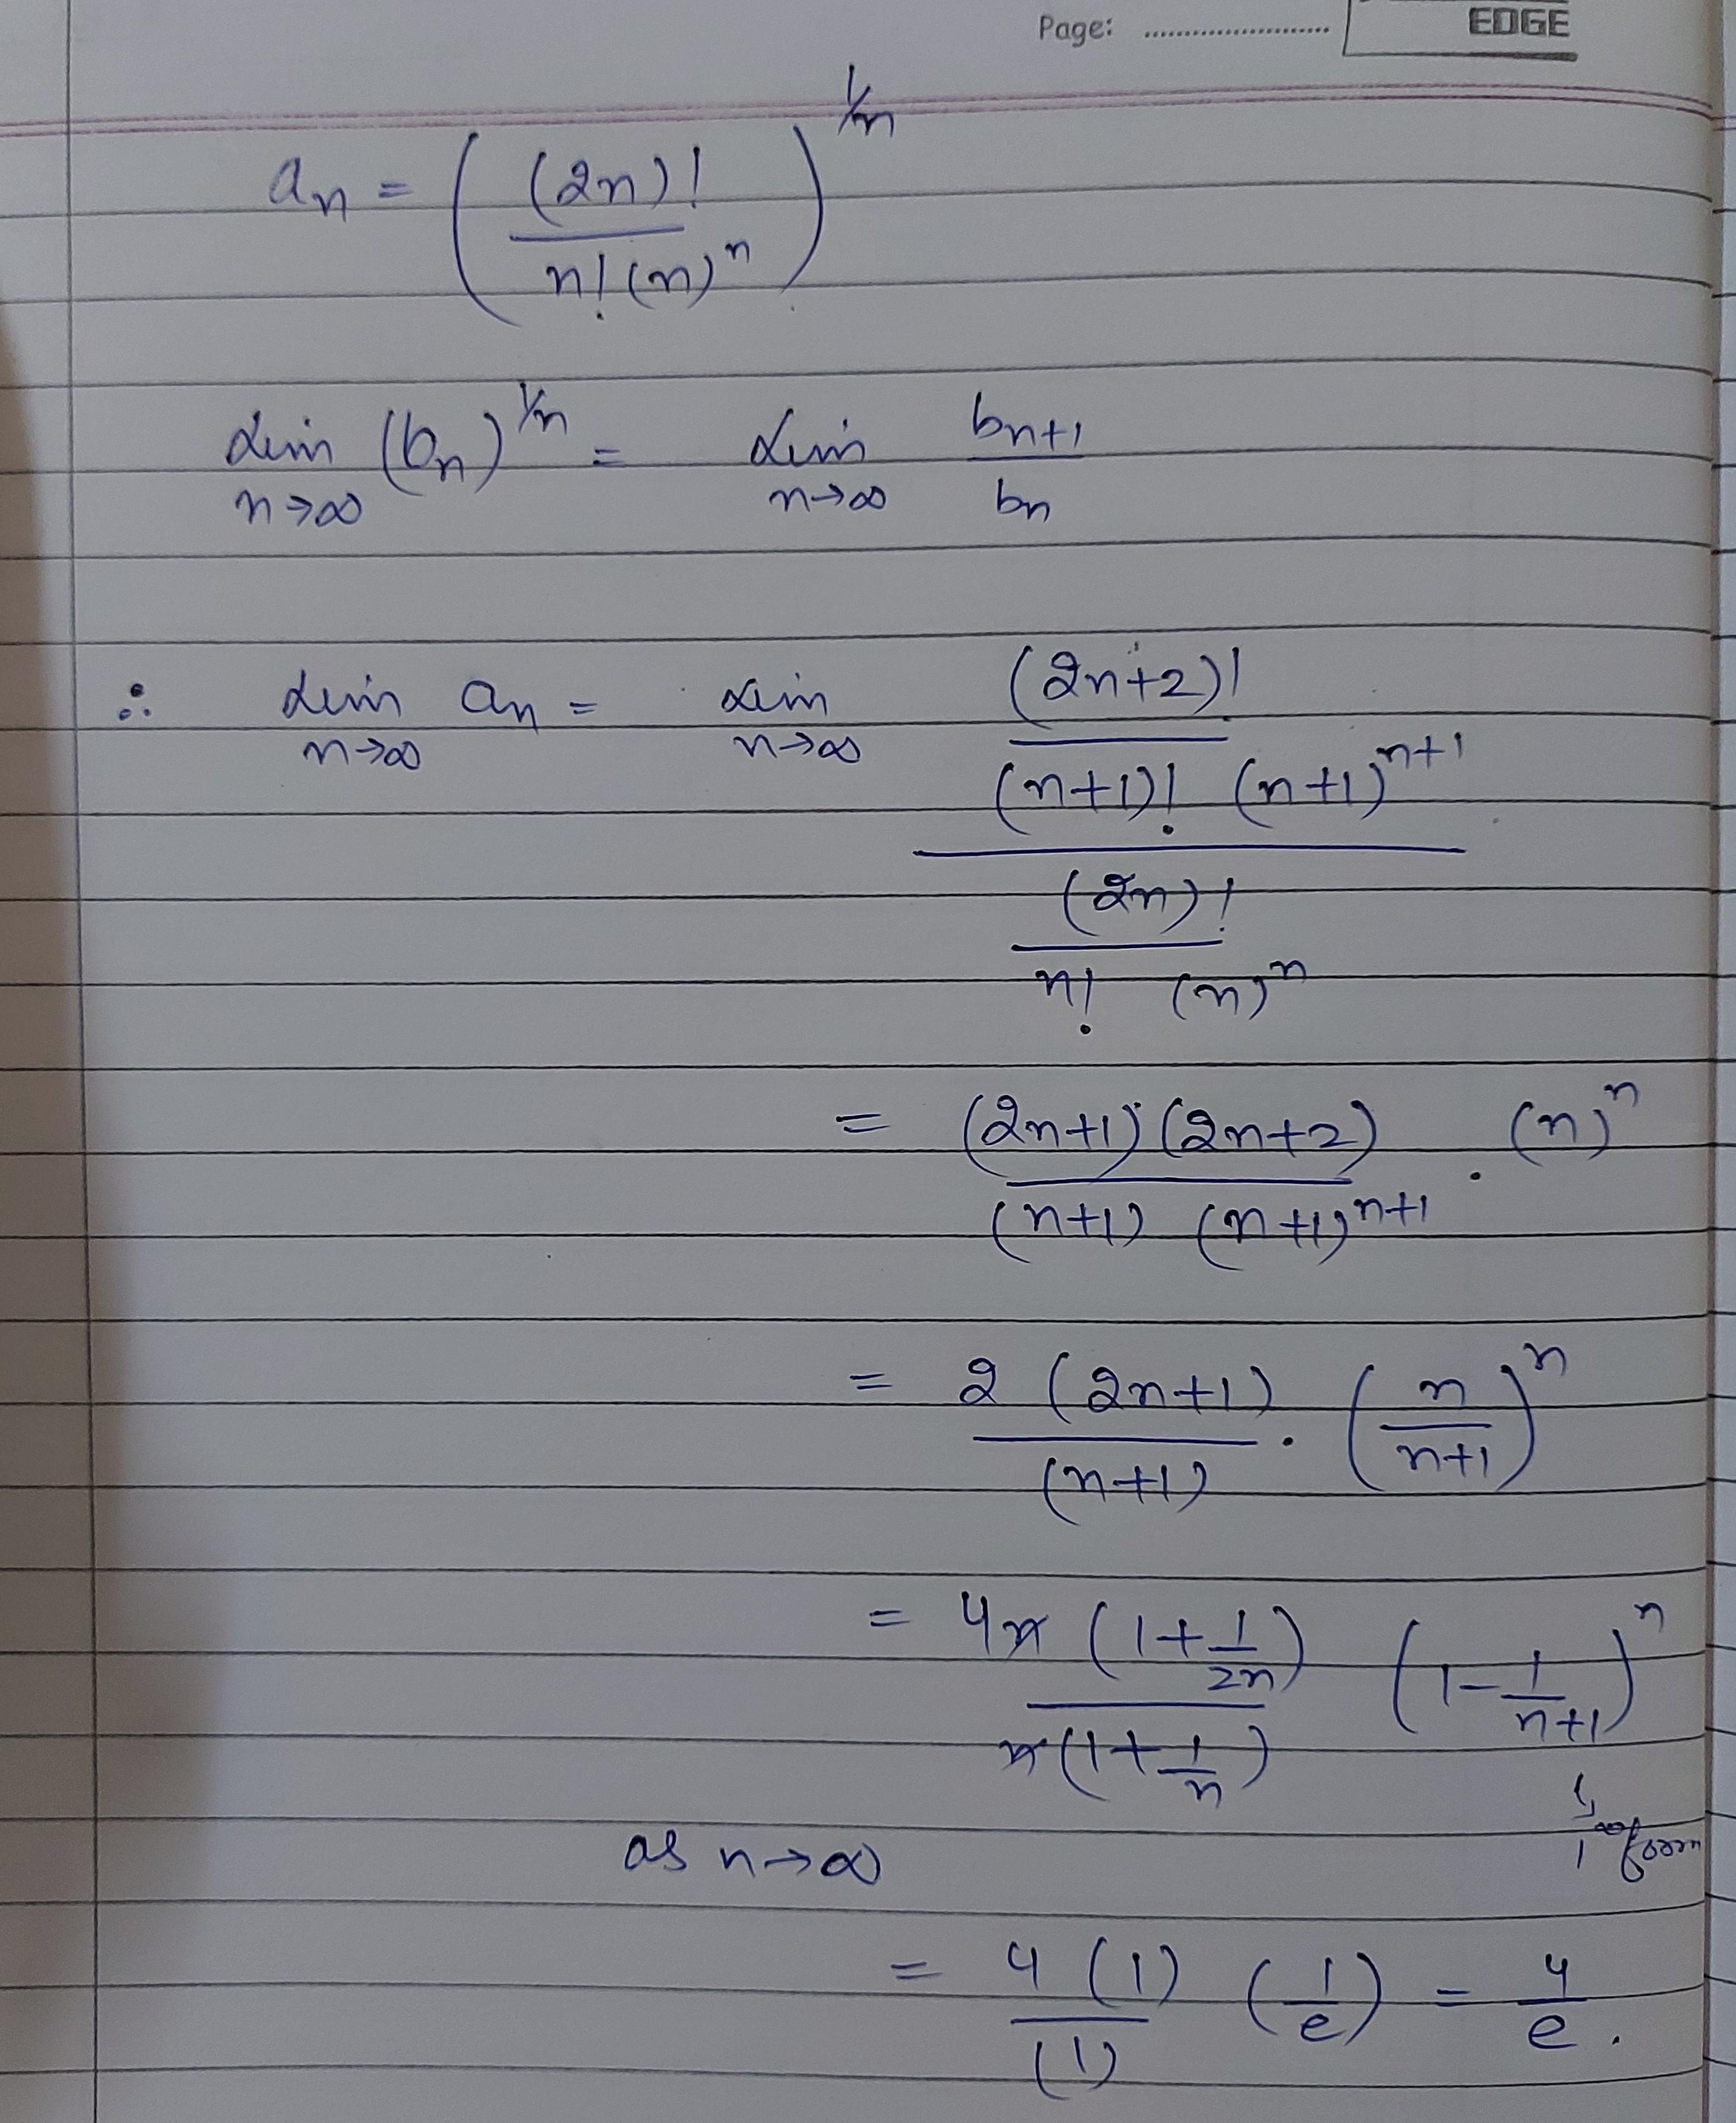 Page: ..........................
EDGE
aₙ = ( (2n)! / n! (n)ⁿ )^(1/n)
Lim n→∞ (bₙ)^(1/n) = Lim n→∞ bₙ₊₁ / bₙ
∴ Lim n→∞ aₙ = Lim n→∞ ( (2n+2)! / (n+1)! (n+1)^(n+1) ) / ( (2n)! / n! (n)ⁿ )
= (2n+1) (2n+2) / (n+1) (n+1)^(n+1) . (n)ⁿ
= 2 (2n+1) / (n+1) . ( n / n+1 )ⁿ
= 4n (1 + 1/2n) / n (1 + 1/n) (1 - 1/n+1)ⁿ
1^∞ form
as n→∞
= 4 (1) / (1) (1/e) = 4/e .